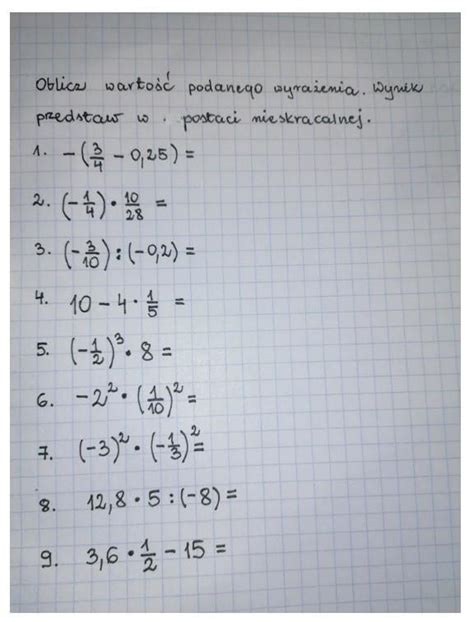 Oblicz wartość podanego wyrażenia. Wynik
przedstaw w . postaci nieskracalnej.
1. -(3/4 - 0,25) =
2. (-1/4) • 10/28 =
3. (-3/10) : (-0,2) =
4. 10 - 4 • 1/5 =
5. (-1/2)³ • 8 =
6. -2² • (1/10)² =
7. (-3)² • (-1/3)² =
8. 12,8 • 5 : (-8) =
9. 3,6 • 1/2 - 15 =